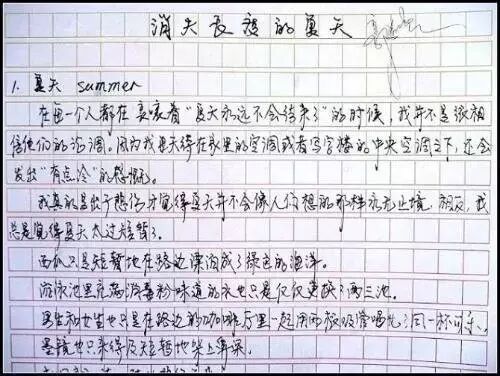 消失长夜的夏天
1. 夏天 summer
在每一个人都在哀嚎着“夏天永远不会结束了”的时候，我并不是很相
信他们的论调。因为我每天待在家里的空调或者写字楼的中央空调之下，还会
发出“有点冷”的感慨。
我真的是出于悲伤才觉得夏天并不会像人们想的那样永无止境，相反，我
总是觉得夏天太过短暂了。
西瓜只是短暂地在路边漂浮成了绿色的海洋。
游泳池里充满消毒粉味道的水也只是仅仅更换了两三池。
男生和女生也只是在路边的咖啡厅里一起用两根吸管喝完了同一杯可乐。
墨镜也只来得及短暂地架上鼻梁。